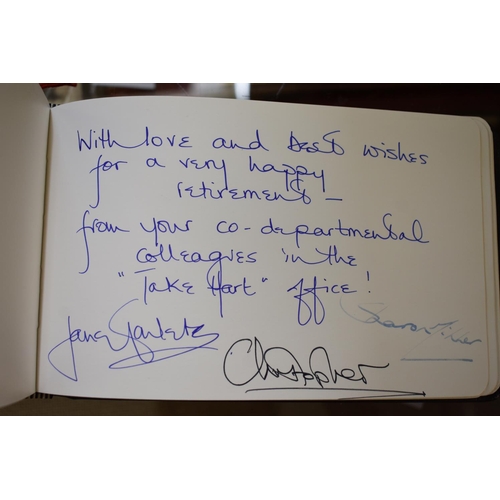 With love and best wishes
for a very happy
retirement –
from your co-departmental
colleagues in the
"Take Hart" office!
Christopher